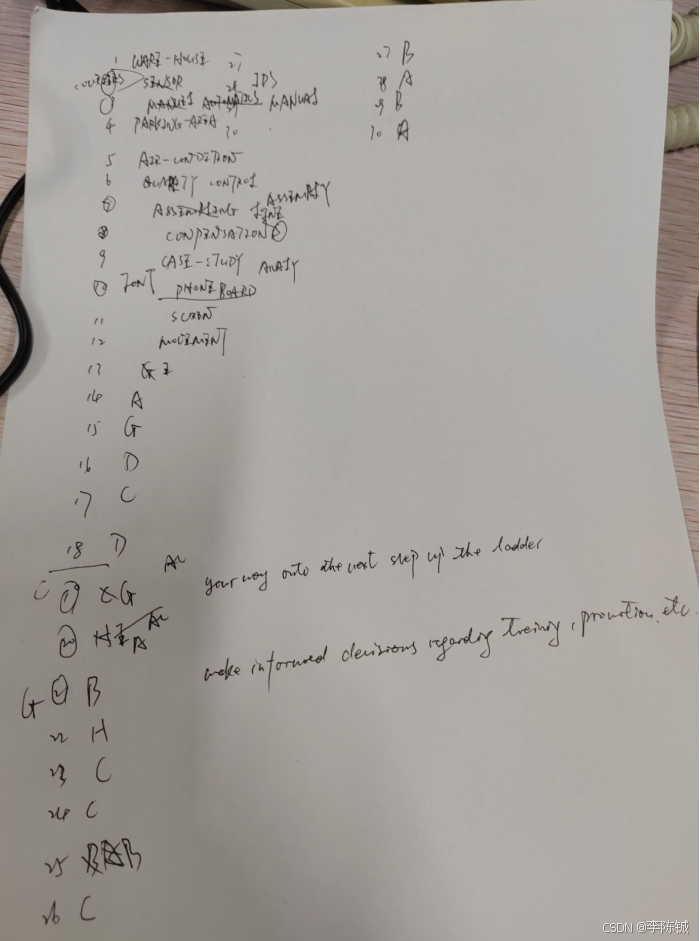 1 WARE-HOUSE 27 27 B
SENSOR 28 IDS 28 A
3 MANUAS 29 B
4 PARKING-AREA 30 30 A
5 AIR-CONDITION
6 QUALITY CONTROL
7 ASSEMBLING LINE ASSEMBLY
8 COMPENSATION
9 CASE-STUDY
10 FONT PHONE BOARD
11 SCEEN
12 MOVEMENT
13 E
14 A
15 G
16 D
17 C
18 D
C 19 G
your way onto the next step up the ladder
20 A
make informed decisions regarding training, promotion. etc.
G 21 B
22 H
23 C
24 C
25 B
26 C
CSDN @李陈铖